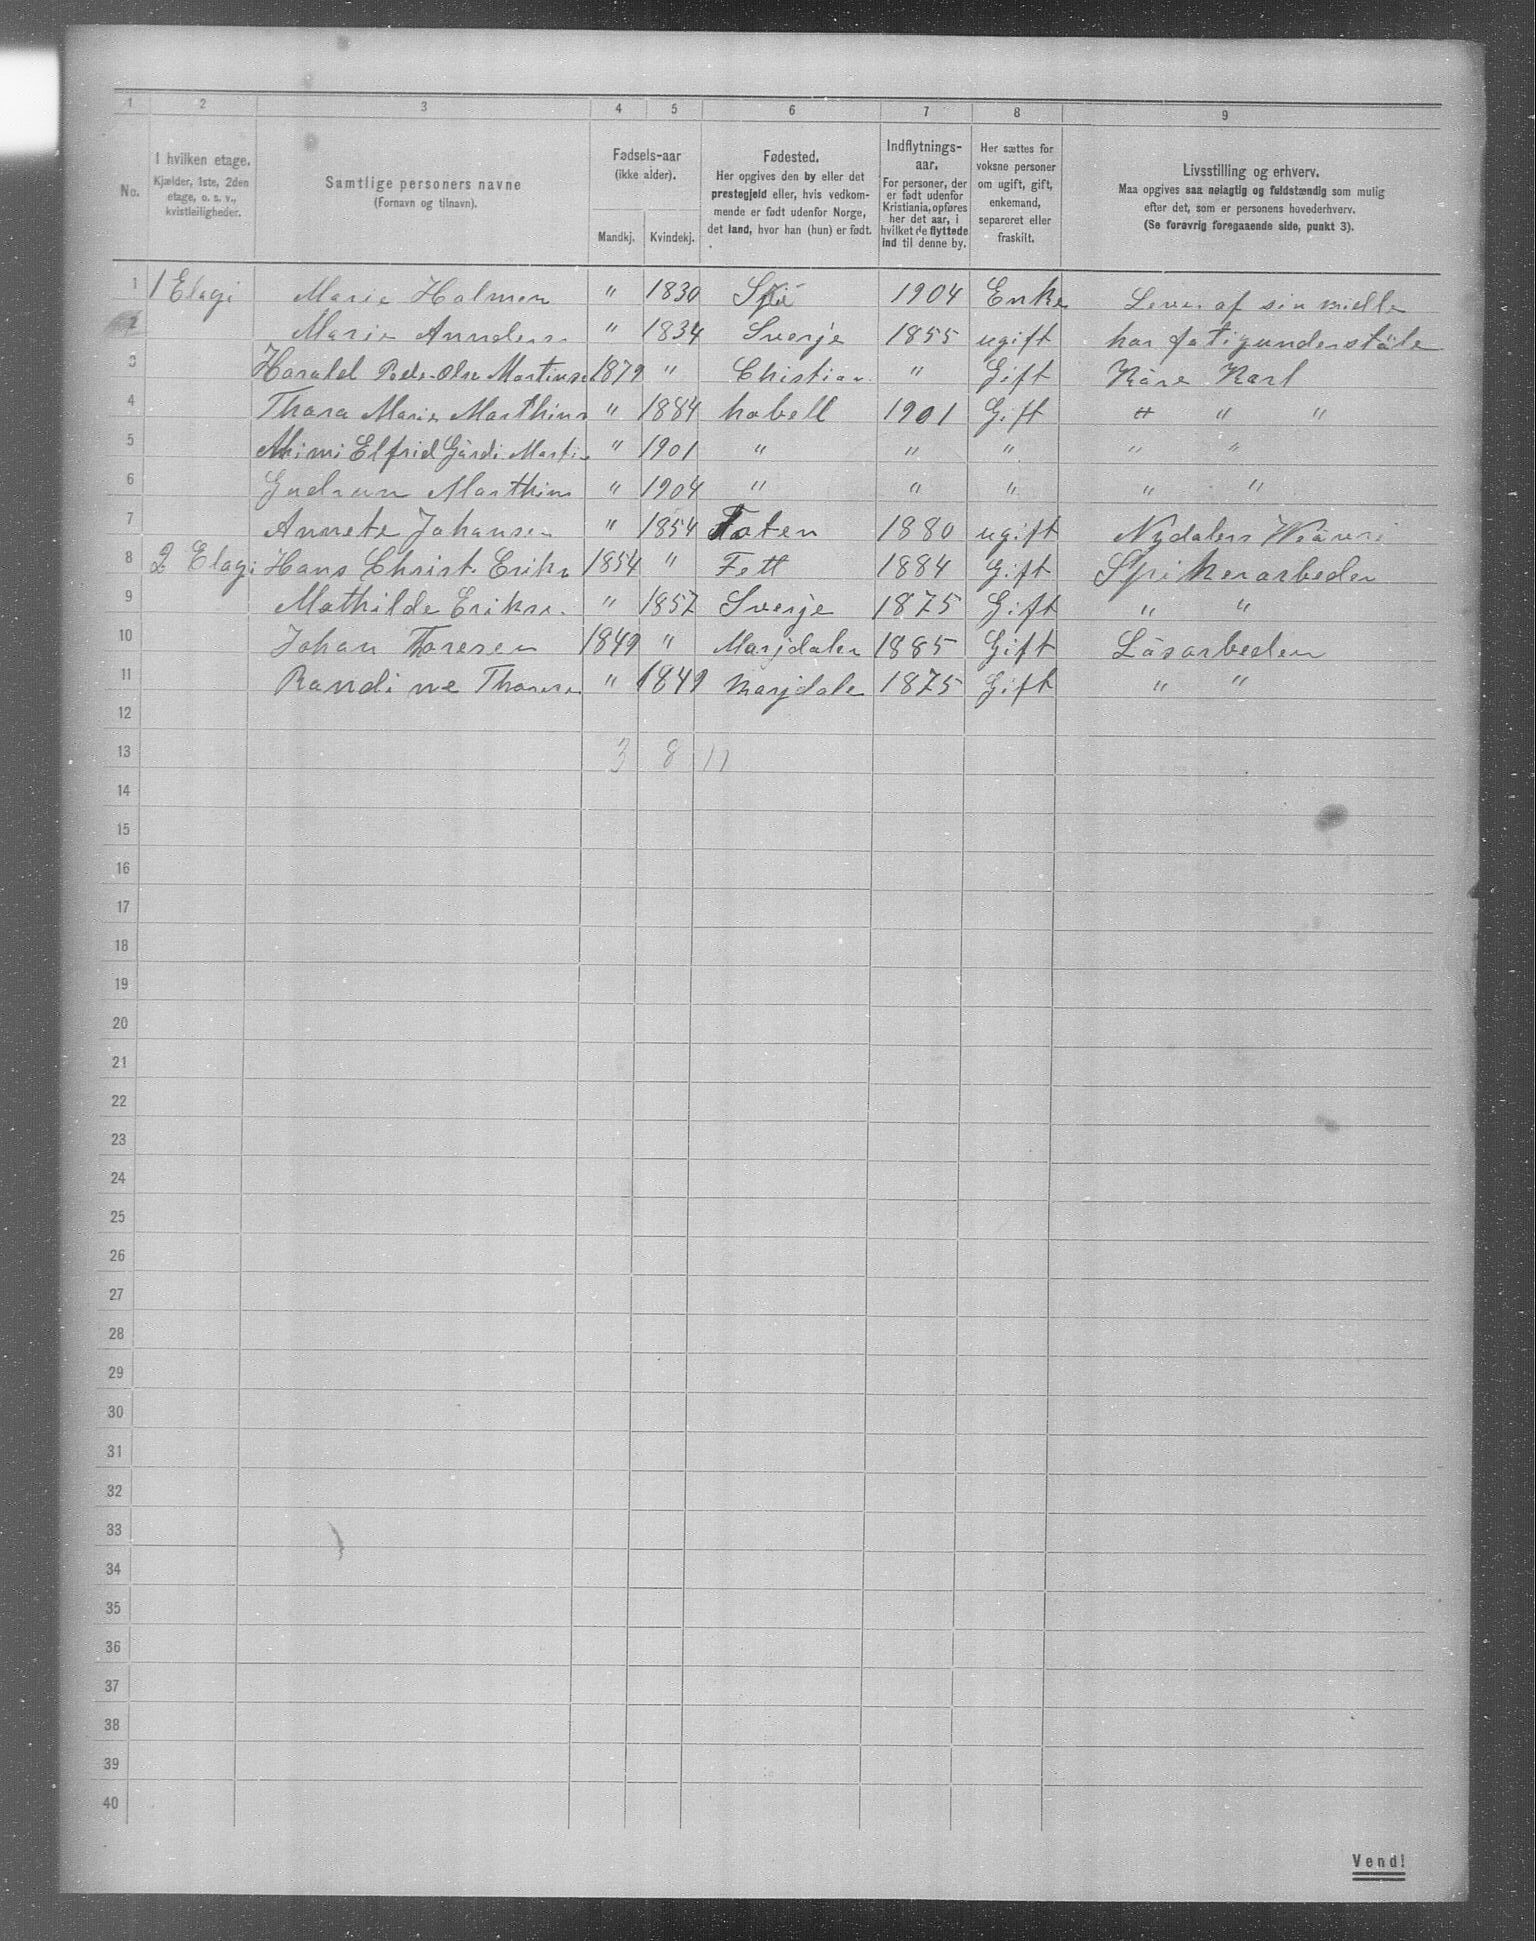 1 2 3 4 5 6 7 8 9
No.
I hvilken etage.
Kjælder, 1ste, 2den
etage, o. s. v.,
kvistleiligheder.
Samtlige personers navne
(Fornavn og tilnavn).
Fødsels-aar
(ikke alder).
Mandkj. Kvindekj.
Fødested.
Her opgives den by eller det
prestegjeld eller, hvis vedkom-
mende er født udenfor Norge,
det land, hvor han (hun) er født.
Indflytnings-
aar.
For personer, der
er født udenfor
Kristiania, opføres
her det aar, i
hvilket de flyttede
ind til denne by.
Her sættes for
voksne personer
om ugift, gift,
enkemand,
separeret eller
fraskilt.
Livsstilling og erhverv.
Maa opgives saa nøiagtig og fuldstændig som mulig
efter det, som er personens hovederhverv.
(Se forøvrig foregaaende side, punkt 3).
1 1 Etagi Marie Holmen " 1830 1904 Enke Lever af sin midle
2 Marie Annders " 1834 Sverje 1855 ugift har fatigunderstøle
3 Harald Peder Olu Martinse 1879 " Christian " Gift Køre Karl
4 Thora Marie Marthins " 1884 hobell 1901 Gift " " "
5 Mimi Elfrid Gärdi Martin " 1901 " " " " "
6 Gudrun Marthins " 1904 " " " " "
7 Annete Johansen " 1854 Toten 1880 ugift Nydalens Væveri
8 2 Etagi Hans Christ. Eriks 1854 " Fett 1884 Gift Spikerarbeder
9 Mathilde Erikse. " 1857 Sverje 1875 Gift " "
10 Johan Thoresen 1849 " Marjdalen 1885 Gift Låsarbeden
11 Randine Thorese " 1849 Marjdale 1875 Gift " "
12
13 3 8 11
14
15
16
17
18
19
20
21
22
23
24
25
26
27
28
29
30
31
32
33
34
35
36
37
38
39
40
Vend!